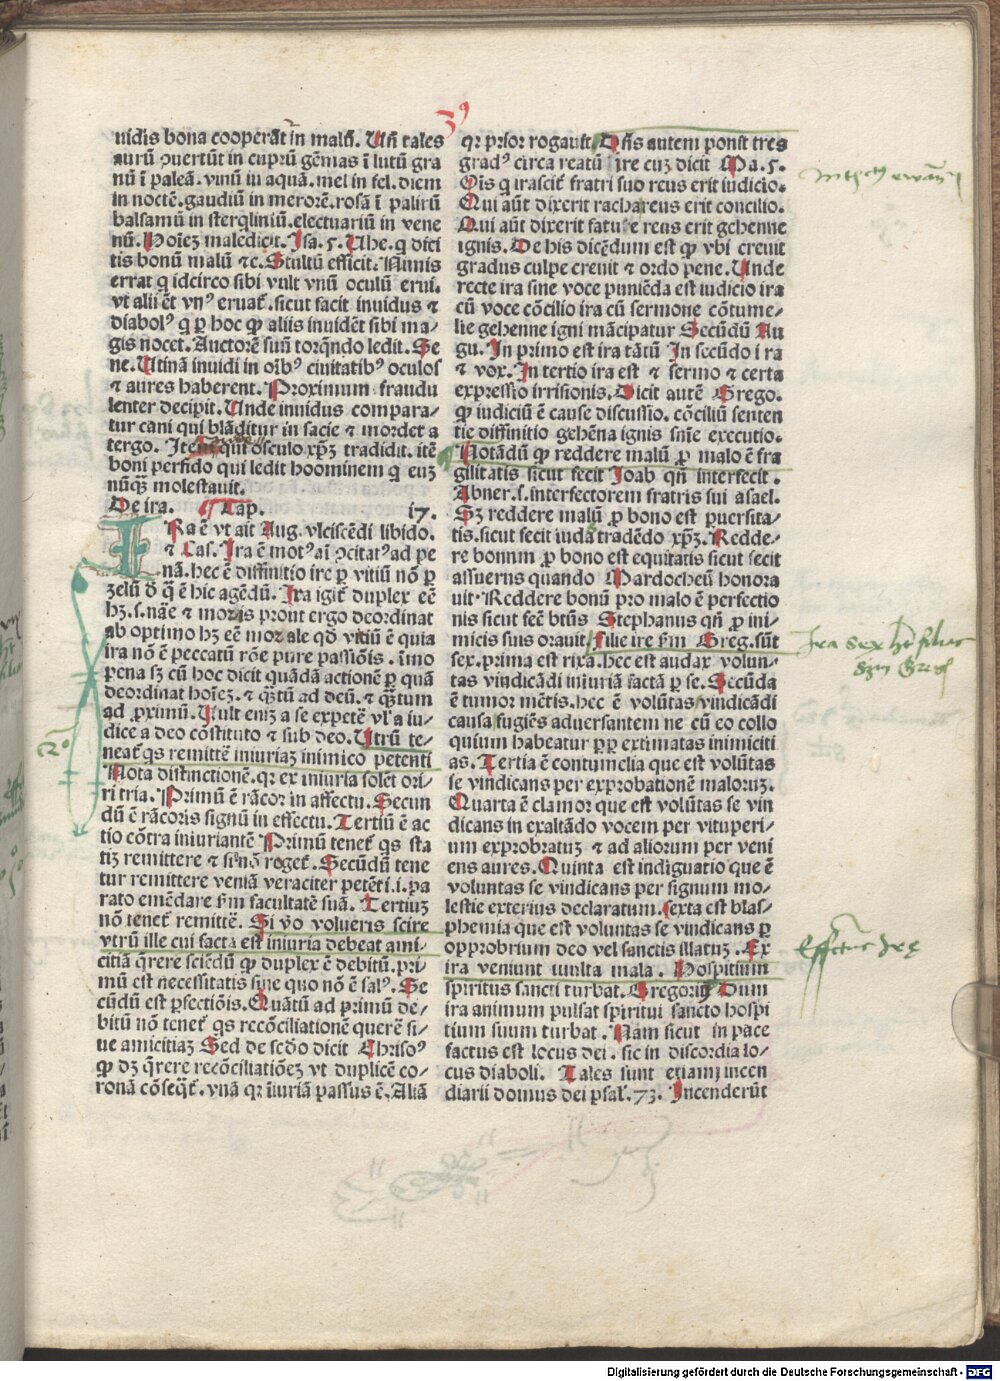 3⁹
uidis bona cooperāt in malū. Uñ tales
aurū ꝯuertūt in cuprū gēmas ī lutū gra
nū ī paleā. vinū iu aquā. mel in fel. diem
in noctē. gaudiū in merorē. rosā ī palirū
balsamū in sterqliniū. electuariū in vene
nū. Hoīeʒ maledicit. Isa. 5. Uhe. q dici
tis bonū malū ⁊c. Stultū efficit. Nimis
errat q idcirco sibi vult vnū oculū erui.
vt alii ēt vn⁹ eruat̄. sicut facit inuidus ⁊
diabol⁹ q ꝑ hoc ꝙ aliis inuidēt sibi ma-
gis nocet. Auctorē suū torqndo ledit. Se
ne. Utinā inuidi in oīb⁹ ciuitatib⁹ oculos
⁊ aures haberent. Proximum fraudu
lenter decipit. Unde inuidus compara/
tur cani qui blāditur in facie ⁊ mordet a
tergo. Item qui osculo xp̄ʒ tradidit. itē
boni perfido qui ledit hoominem q euʒ
nūqʒ molestauit.
De ira. Cap. i7.
IRa ē vt ait Aug. vlciscēdi libido.
⁊ Cas. Ira ē mot⁹ aī ꝯcitat⁹ ad pe
nā. hec ē diffinitio ire ꝑ vitiū nō ꝑ
zelū ð q̄ ē hic agēdū. Ira igit̄ duplex eē
hʒ. s. nāe ⁊ moris prout ergo deordinat
ab optimo hʒ eē morale qð vitiū ē quia
ira nō ē peccatū rōe pure passiōis. īmo
pena sʒ cū hoc dicit quādā actionē ꝑ quā
deordinat hoīeʒ. ⁊ q̄tū ad deū. ⁊ q̄tum
ad ꝓximū. Uult eniʒ a se expetē vl̄ a iu/
dice a deo cōstituto ⁊ sub deo. Utrū te/
neat̄ qs remittē iniuriaʒ inimico petenti
Nota distinctionē. qr ex iniuria solet ori/
ri tria. Primū ē rācor in affectu. Secun
dū ē rācoris signū in effectu. Tertiū ē ac
tio cōtra iniuriantē Primū tenet̄ qs sta
tiʒ remittere ⁊ si nō roget̄. Secūdū tene
tur remittere veniā veraciter petēti. i. pa
rato emēdare ẜm facultatē suā. Tertiuʒ
nō tenet̄ remittē. Si vo volueris scire
vtrū ille cui facta est iniuria debeat ami-
citiā q̄rere sciēdū ꝙ duplex ē debitū. pri-
mū est necessitatis sine quo nō ē sal⁹. Se
cūdū est ꝑfectiōis. Quātū ad primū de/
bitū nō tenet̄ qs recōciliationē querē si/
ue amicitiaʒ Sed de scðo dicit Chriso⁹
ꝙ dʒ q̄rere recōciliatiōeʒ vt duplicē co/
ronā cōseqt̄. vnā qr īiuriā passus ē. Aliā
qr prior rogauit Dn̄s autem ponit tres
grad⁹ circa reatū ire cuʒ dicit Ma. 5.
Oīs q irascit̄ fratri suo reus erit iudicio.
Qui aūt dixerit racha reus erit concilio.
Qui aūt dixerit fatue reus erit gehenne
ignis. De his dicēdum est ꝙ vbi creuit
gradus culpe creuit ⁊ ordo pene. Unde
recte ira sine voce puniēda est iudicio ira
cū voce cōcilio ira cū sermone cōtume/
lie gehenne igni mācipatur Secūdū Au
gu. In primo est ira tātū In secūdo i ra
⁊ vox. In tertio ira est ⁊ sermo ⁊ certa
expressio irrisionis. Dicit autē Grego.
ꝙ iudiciū ē cause discussio. cōciliū senten
tie diffinitio gehēna ignis sn̄ie executio.
Notādū ꝙ reddere malū ꝓ malo ē fra
gilitatis sicut fecit Joab qn̄ interfecit
Abner. s. interfectorem fratris sui asael.
Sʒ reddere malū ꝓ bono est ꝑuersita/
tis. sicut fecit iudā tradēdo xp̄ʒ. Redde/
re bonum ꝓ bono est equitatis sicut fecit
assuerus quando Mardocheū honora
uit. Reddere bonū pro malo ē perfectio
nis sicut fec̄ bt̄us Stephanus qn̄ ꝓ ini/
micis suis orauit. Filie ire ẜm Greg. sūt
sex. prima est rixa. hec est audax volun/
tas vindicādi iniuriā factā ꝑ se. Secūda
ē tumor mētis. hec ē volūtas vindicādi
causa fugiēs aduersantem ne cū eo collo
quium habeatur ꝓꝑ extimatas inimiciti
as. Tertia ē contumelia que est volūtas
se vindicans per exprobationē malorūʒ.
Quarta ē clamor que est volūtas se vin
dicans in exaltādo vocem per vituperi/
um exprobratuʒ ⁊ ad aliorum per veni
ens aures. Quinta est indignatio que ē
voluntas se vindicans per signum mo/
lestie exterius declaratum. sexta est blas/
phemia que est voluntas se vindicans ꝑ
opprobrium deo vel sanctis illatuʒ. Ex
ira veniunt multa mala. Hospitium
spiritus sancti turbat. Gregorius Dum
ira animum pulsat spiritui sancto hospi
tium suum turbat. Nam sicut in pace
factus est locus dei. sic in discordia lo/
cus diaboli. Tales sunt etiam incen
diarii domus dei psal. 73. Incenderūt
2°
Ira sex hʒ filias
Digitalisierung gefördert durch die Deutsche Forschungsgemeinschaft - DFG